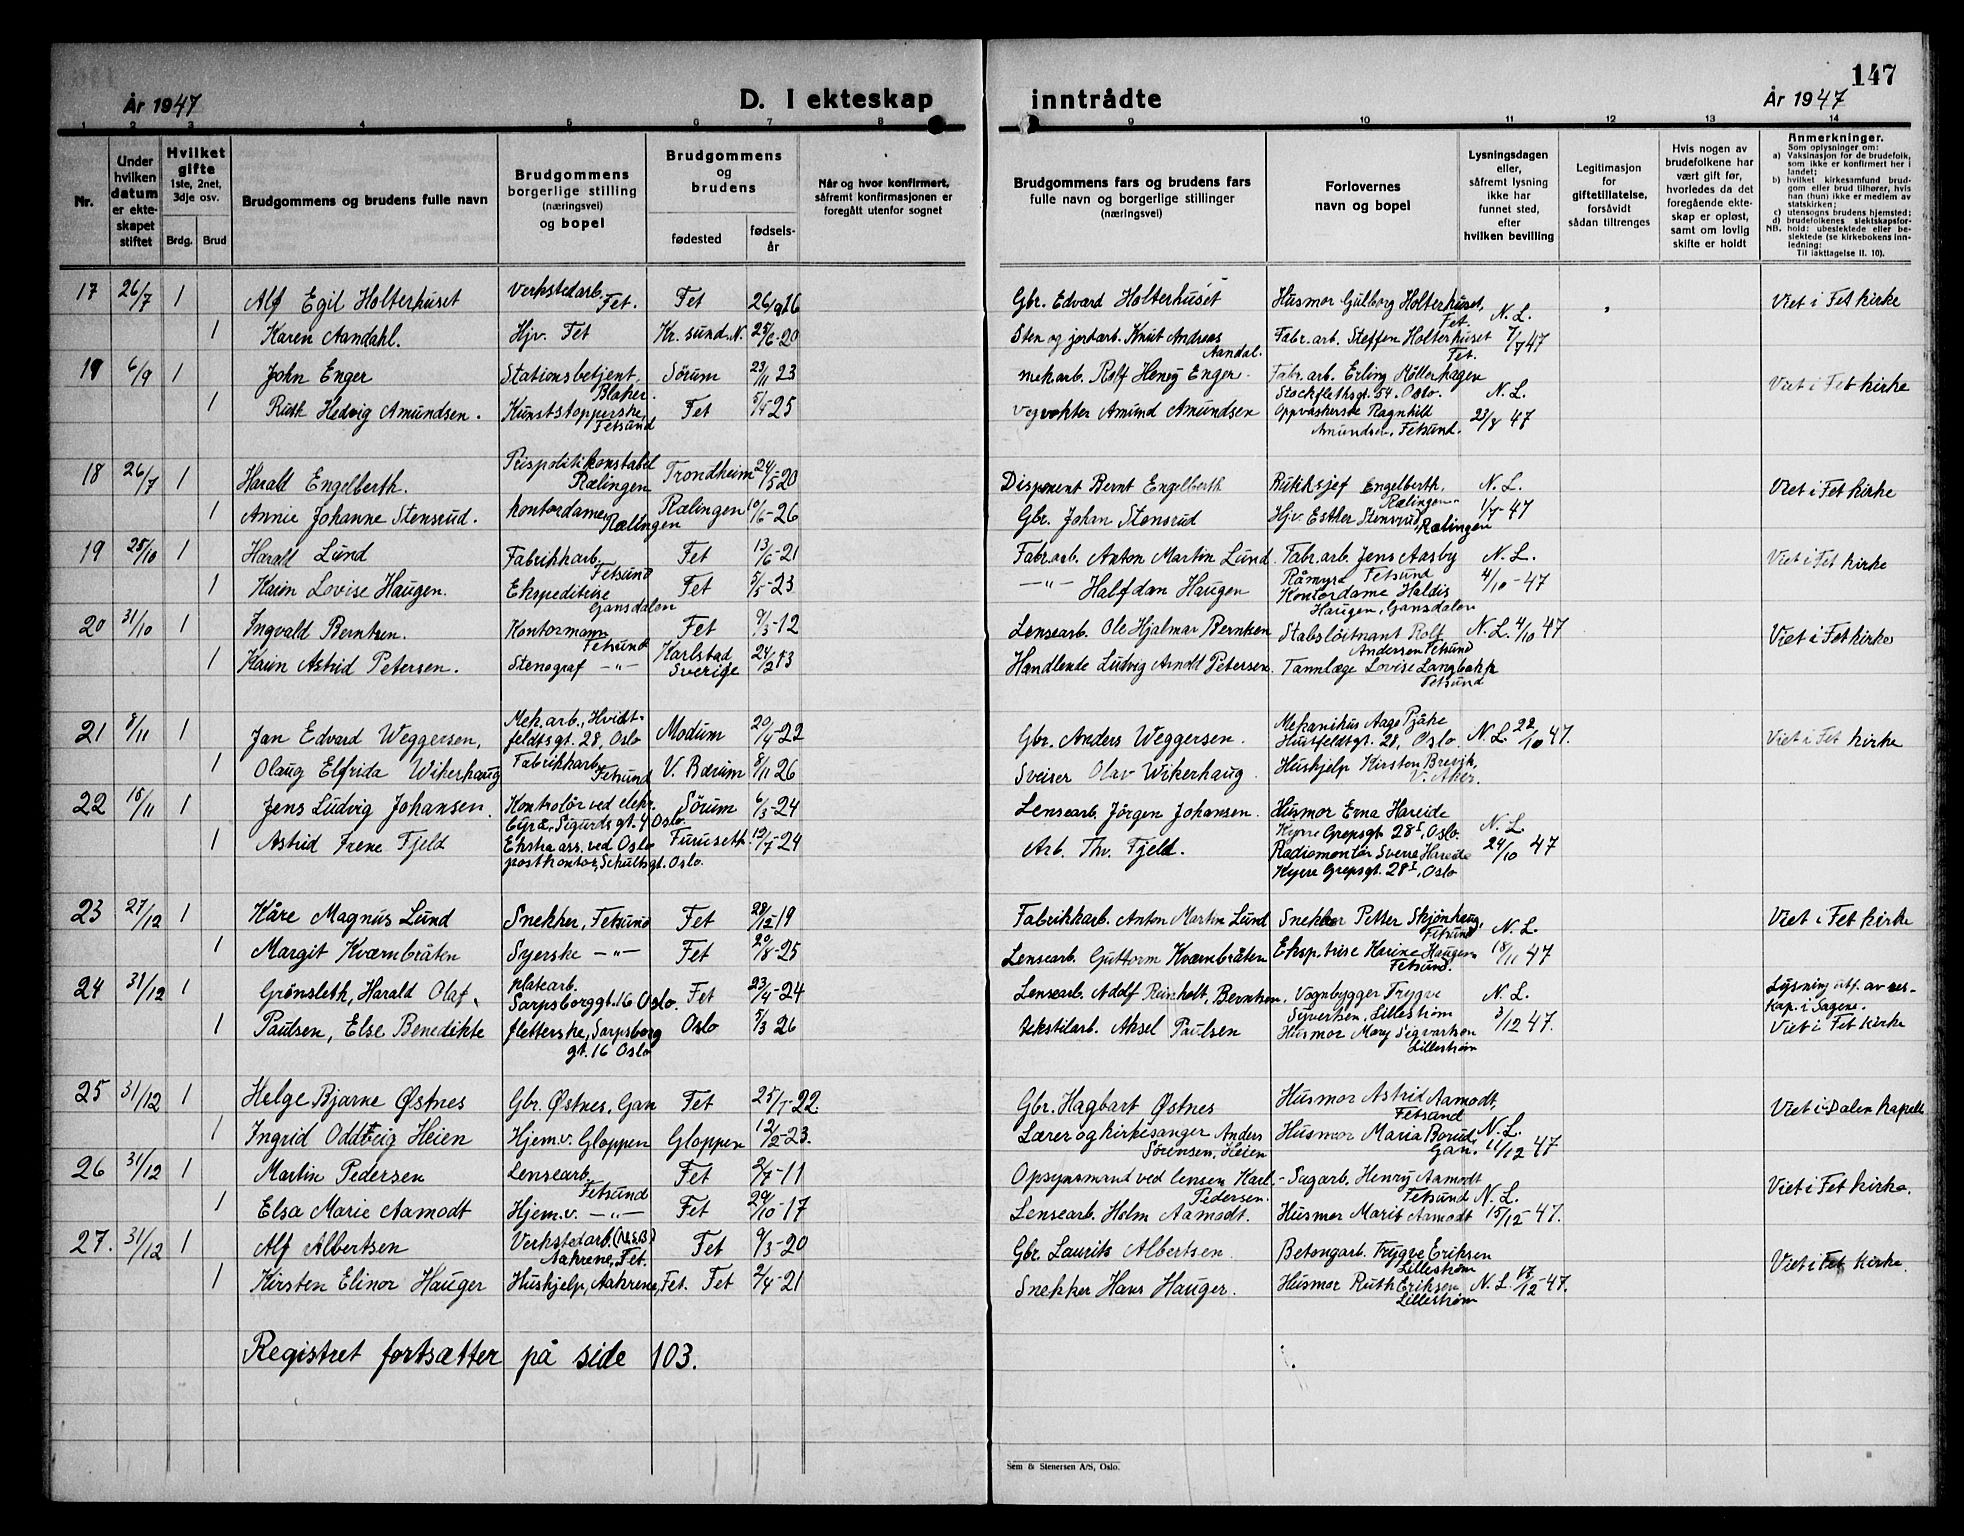 147
År 1947
D. I ekteskap inntrådte
År 1947
1 2 3 4 5 6 7 8 9 10 11 12 13 14
Nr.
Under hvilken datum er ekteskapet stiftet
Hvilket gifte 1ste, 2net, 3dje osv.
Brdg. Brud
Brudgommens og brudens fulle navn
Brudgommens borgerlige stilling (næringsvei) og bopel
Brudgommens og brudens
fødested
fødselsår
Når og hvor konfirmert, såfremt konfirmasjonen er foregått utenfor sognet
Brudgommens fars og brudens fars fulle navn og borgerlige stillinger (næringsvei)
Forlovernes navn og bopel
Lysningsdagen eller, såfremt lysning ikke har funnet sted, efter hvilken bevilling
Legitimasjon for giftetillatelse, forsåvidt sådan tiltrenges
Hvis nogen av brudefolkene har vært gift før, hvorledes da det foregående ekteskap er opløst, samt om lovlig skifte er holdt
Anmerkninger.
Som oplysninger om:
a) Vaksinasjon for de brudefolk, som ikke er konfirmert her i landet;
b) hvilket kirkesamfund brudgom eller brud tilhører, hvis han (hun) ikke er medlem av statskirken;
c) utensogns brudens hjemsted;
d) brudefolkenes slektskapsforhold: ubeslektede eller beslektede (se kirkebokens innledning:
NB.
Til iakttagelse II. 10).
17 26/7 1 Alf Egil Holterhuset Verkstedarb. Fet. Fet 26/9 16 Gbr. Edvard Holterhuset Husmor Gulborg Holterhuset, Fet. N. L. Viet i Fet kirke
1 Karen Aandahl. Hjv. Fet Kr. sund. N. 25/6-20 Sten og jordarb. Knut Andreas Aandal. Fabr. arb. Steffen Holterhuset Fet. 7/7 47
6/9 1 John Enger Stationsbetjent, Blaker. Sörum 23/11 23 Mek arb. Rolf Henry Enger. Fabr. arb. Erling Möllerhagen Stockflethsgt. 54. Oslo. N. L. Viet i Fet kirke
1 Ruth Hedvig Amundsen. Kunststopperske, Fetsund Fet 25 Vegvokter Amund Amundsen Oppvaskerske Ragnhild Amundsen, Fetsund. 23/8 47
18 26/7 1 Harald Engelberth. Prispolitikonstabel Rælingen Trondheim 24/5-20 Disponent Bernt Engelberth Engelberth, Rælingen. N. L. Viet i Fet kirke
1 Annie Johanne Stensrud. Kontordame, Rælingen Rælingen 10/6-26 Gbr. Johan Stensrud Hjv. Esther Stensrud, Rælingen 1/7-47
19 25/10 1 Harald Lund Fabrikkarb. Fetsund Fet 13/6-21 Fabr. arb. Anton Martin Lund Fabr. arb. Jens Aasby Råmyra Fetsund N. L. Viet i Fet kirke
1 Karin Lovise Haugen. Ekspeditrise Gansdalen Fet 5/5-23 —"— Halfdan Haugen Kontordame Haldis Haugen, Gansdalen 4/10-47
20 31/10 1 Ingvald Berntzen. Kontormann Fetsund Fet 9/3-12 Lensearb. Ole Hjalmar Berntzen Stabsløitnant Rolf Andersen Fetsund N. L. 4/10 47 Viet i Fet kirke
1 Karin Astrid Petersen. Stenograf —"— Karlstad Sverige 24/2 13 Handlende Ludvig Arnold Petersen. Tannlæge Lovise Langbakk Fetsund
21 8/11 1 Jan Edvard Weggersen, Mek. arb., Hvidtfeldtsgt. 28, Oslo Modum 20/4-22 Gbr. Anders Weggersen. Mekanikus Aage Huitfeldtsgt. 28, Oslo. N. L. 22/10 47. Viet i Fet kirke
1 Olaug Elfrida Wikerhaug Fabrikkarb. Fetsund V. Bærum 8/11 26 Sveiser Olav Wikerhaug. Hushjelp Kirsten Brevik, V. Aker.
22 15/11 1 Jens Ludvig Johansen. Kontrolör ved elekr. byrå, Sigurds gt. 4 Oslo. Sörum 6/3-24 Lensearb. Jörgen Johansen. Husmor Erna Hareide Kyrre Grepsgt 28 I, Oslo. N. L.
1 Astrid Irene Fjeld Ekstra ass. ved Oslo postkontor, Schultsgt. Oslo. Furuseth. 12/7-24 Arb. Th. Fjeld. Radiomontör Sverre Hareide Kyrre Grepsgt. 28 I, Oslo 24/10 47
23 27/12 1 Kåre Magnus Lund Snekker, Fetsund Fet 28/12-19 Fabrikkarb. Anton Martin Lund Snekker Petter Skjönhaug, Fetsund N. L. Viet i Fet kirke
1 Margit Kværnbråten Syerske —"— Fet 20/8-25 Lensearb. Guttorm Kværnbråten Eksp. trise Karine Haugen Fetsund. 18/11 47
24 31/12 1 Grønsleth, Harald Olaf. Platearb. Sarpsborggt. 16 Oslo. Fet 23/4-24 Lensearb. Adolf Reinholt, Berntzen, Vognbygger Trygve Syvertsen, Lillestrøm N. L. Lysning utf. av res. Kap. i Sagene.
1 Paulsen, Else Benedikte fletterske, Sarpsborg gt. 16 Oslo Oslo 5/3 26 Tekstilarb. Aksel Paulsen Husmor Mary Sigvartsen Lillestrøm 3/12 47. Viet i Fet kirke
25 31/12 1 Helge Bjarne Østnes Gbr. Østnes, Gan Fet 25/7-22. Gbr. Hagbart Østnes Husmor Astrid Aamodt, Fetsund Viet i Dalen Kapell
1 Ingrid Oddveig Heien Hjem. v. Gloppen Gloppen 12/2-23. Lærer og kirkesanger Anders Sørensen, Heien Husmor Maria Borud, Gan. N. L. 11/12 47
26 31/12 1 Martin Pedersen Lensearb. Fetsund Fet 2/7-11 Opsynsmand ved lensen Karl Pedersen. Sagarb. Henry Aamodt Fetsund N. L. Viet i Fet kirke.
1 Elsa Marie Aamodt Hjem. v. —"— Fet 29/10-17 Lensearb. Holm Aamodt. Husmor Marit Aamodt 15/12-47.
27. 31/12 1 Alf Albertsen Verkstedarb. (N.S.B.) Aahrene, Fet. Fet 9/3-20 Gbr. Laurits Albertsen. Betongarb. Trygve Eriksen Lillestrøm Viet i Fet kirke.
1 Kirsten Elinor Hauger Hushjelp, Aahrene, Fet. Fet 2/4-21 Snekker Hans Hauger. Husmor Ruth Eriksen Lillestrøm N. L. 17/12-47.
Registret fortsætter på side 103.
Sem & Stenersen A/S, Oslo.